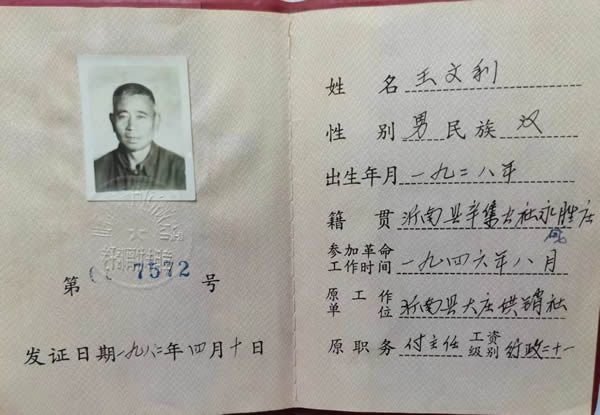 第 7572 号
发证日期一九八二年四月十日
姓名 王文利
性别 男 民族 汉
出生年月 一九二八年
籍贯 沂南县辛集公社永胜庄
参加革命工作时间 一九四六年八月
原工作单位 沂南县大庄供销社
原职务 付主任 工资级别 行政二十一